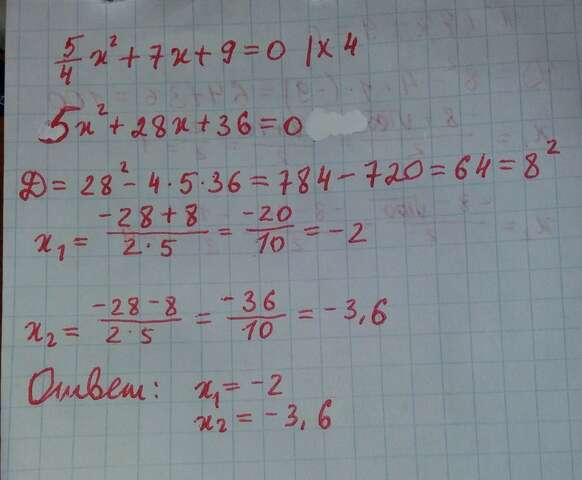 5/4 x² + 7x + 9 = 0 | × 4
5x² + 28x + 36 = 0
D = 28² - 4 · 5 · 36 = 784 - 720 = 64 = 8²
x₁ = (-28 + 8)/(2 · 5) = -20/10 = -2
x₂ = (-28 - 8)/(2 · 5) = -36/10 = -3,6
Ответ: x₁ = -2
x₂ = -3,6